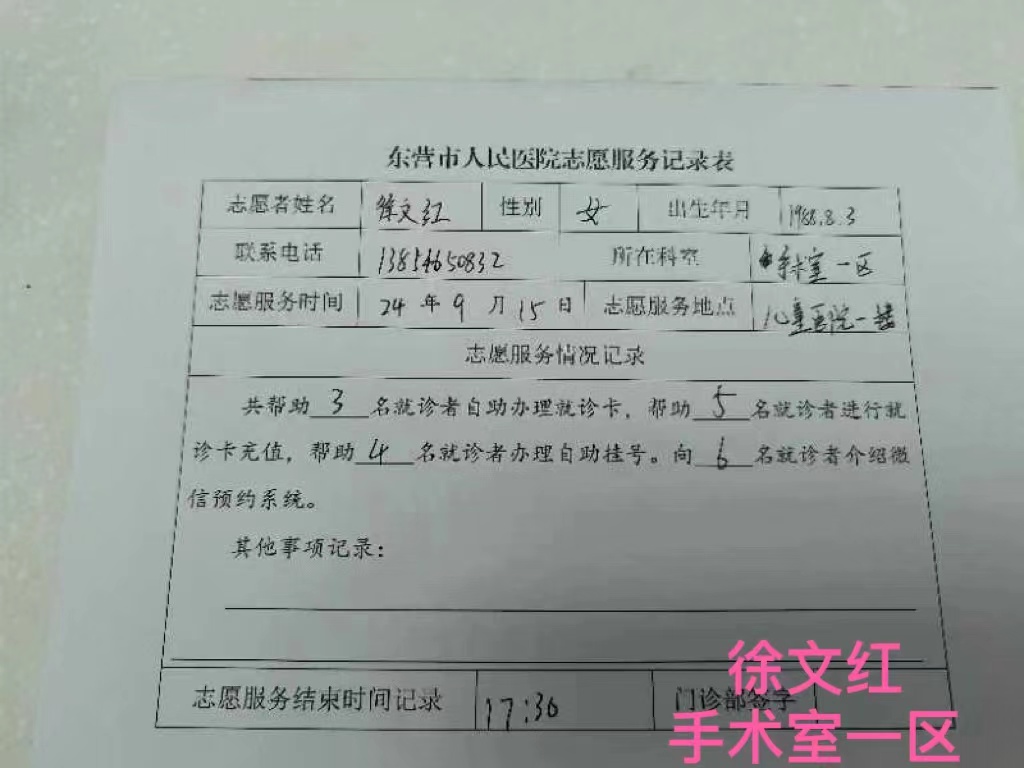 东营市人民医院志愿服务记录表
志愿者姓名 徐文红 性别 女 出生年月 1988.8.3
联系电话 13854650832 所在科室 手术室一区
志愿服务时间 24年9月15日 志愿服务地点 儿童医院一楼
志愿服务情况记录
共帮助3名就诊者自助办理就诊卡，帮助5名就诊者进行就
诊卡充值，帮助4名就诊者办理自助挂号。向6名就诊者介绍微
信预约系统。
其他事项记录：
志愿服务结束时间记录 17:30 门诊部签字
徐文红
手术室一区